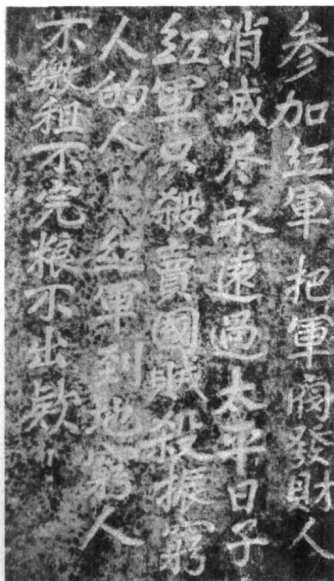 参加红軍 把軍阀發財人
消滅尽永遠過太平日子
紅軍只殺賣國賊殺振窮
人的人 紅軍到地窮人
不繳租不完粮不出款